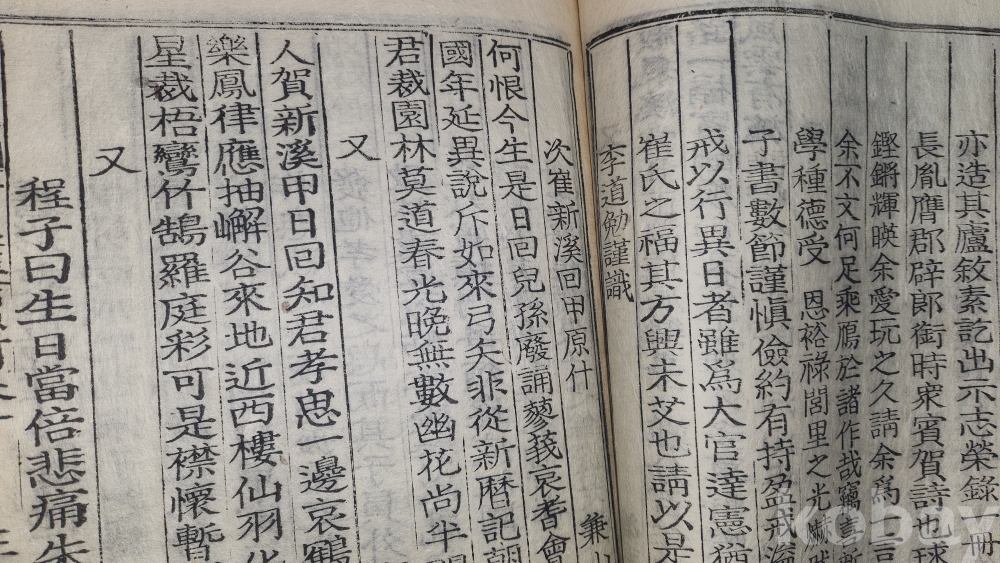 亦造其廬敘素訖出示志榮錄一冊
長胤膺郡辟郞銜時衆賓賀詩也球
鏗鏘輝暎余愛玩之久請余爲言
余不文何足乘鴈於諸作哉竊
學種德受 恩裕祿閭里之光
子書數節謹愼儉約有持盈戒
戒以行異日者雖爲大官達憲猶
崔氏之福其方興未艾也請以是
李道勉謹識
次崔新溪回甲原什 兼山
何恨今生是日回兒孫廢誦蓼莪哀耆會
國年延異說斥如來弓矢非從新曆記
君裁園林莫道春光晩無數幽花尚半
又
人賀新溪甲日回知君孝思一邊哀鶴
樂鳳律應抽嶰谷來地近西樓仙羽
星裁梧鸞竹鵠羅庭彩可是襟懷暫
又
程子曰生日當倍悲痛朱
xobay